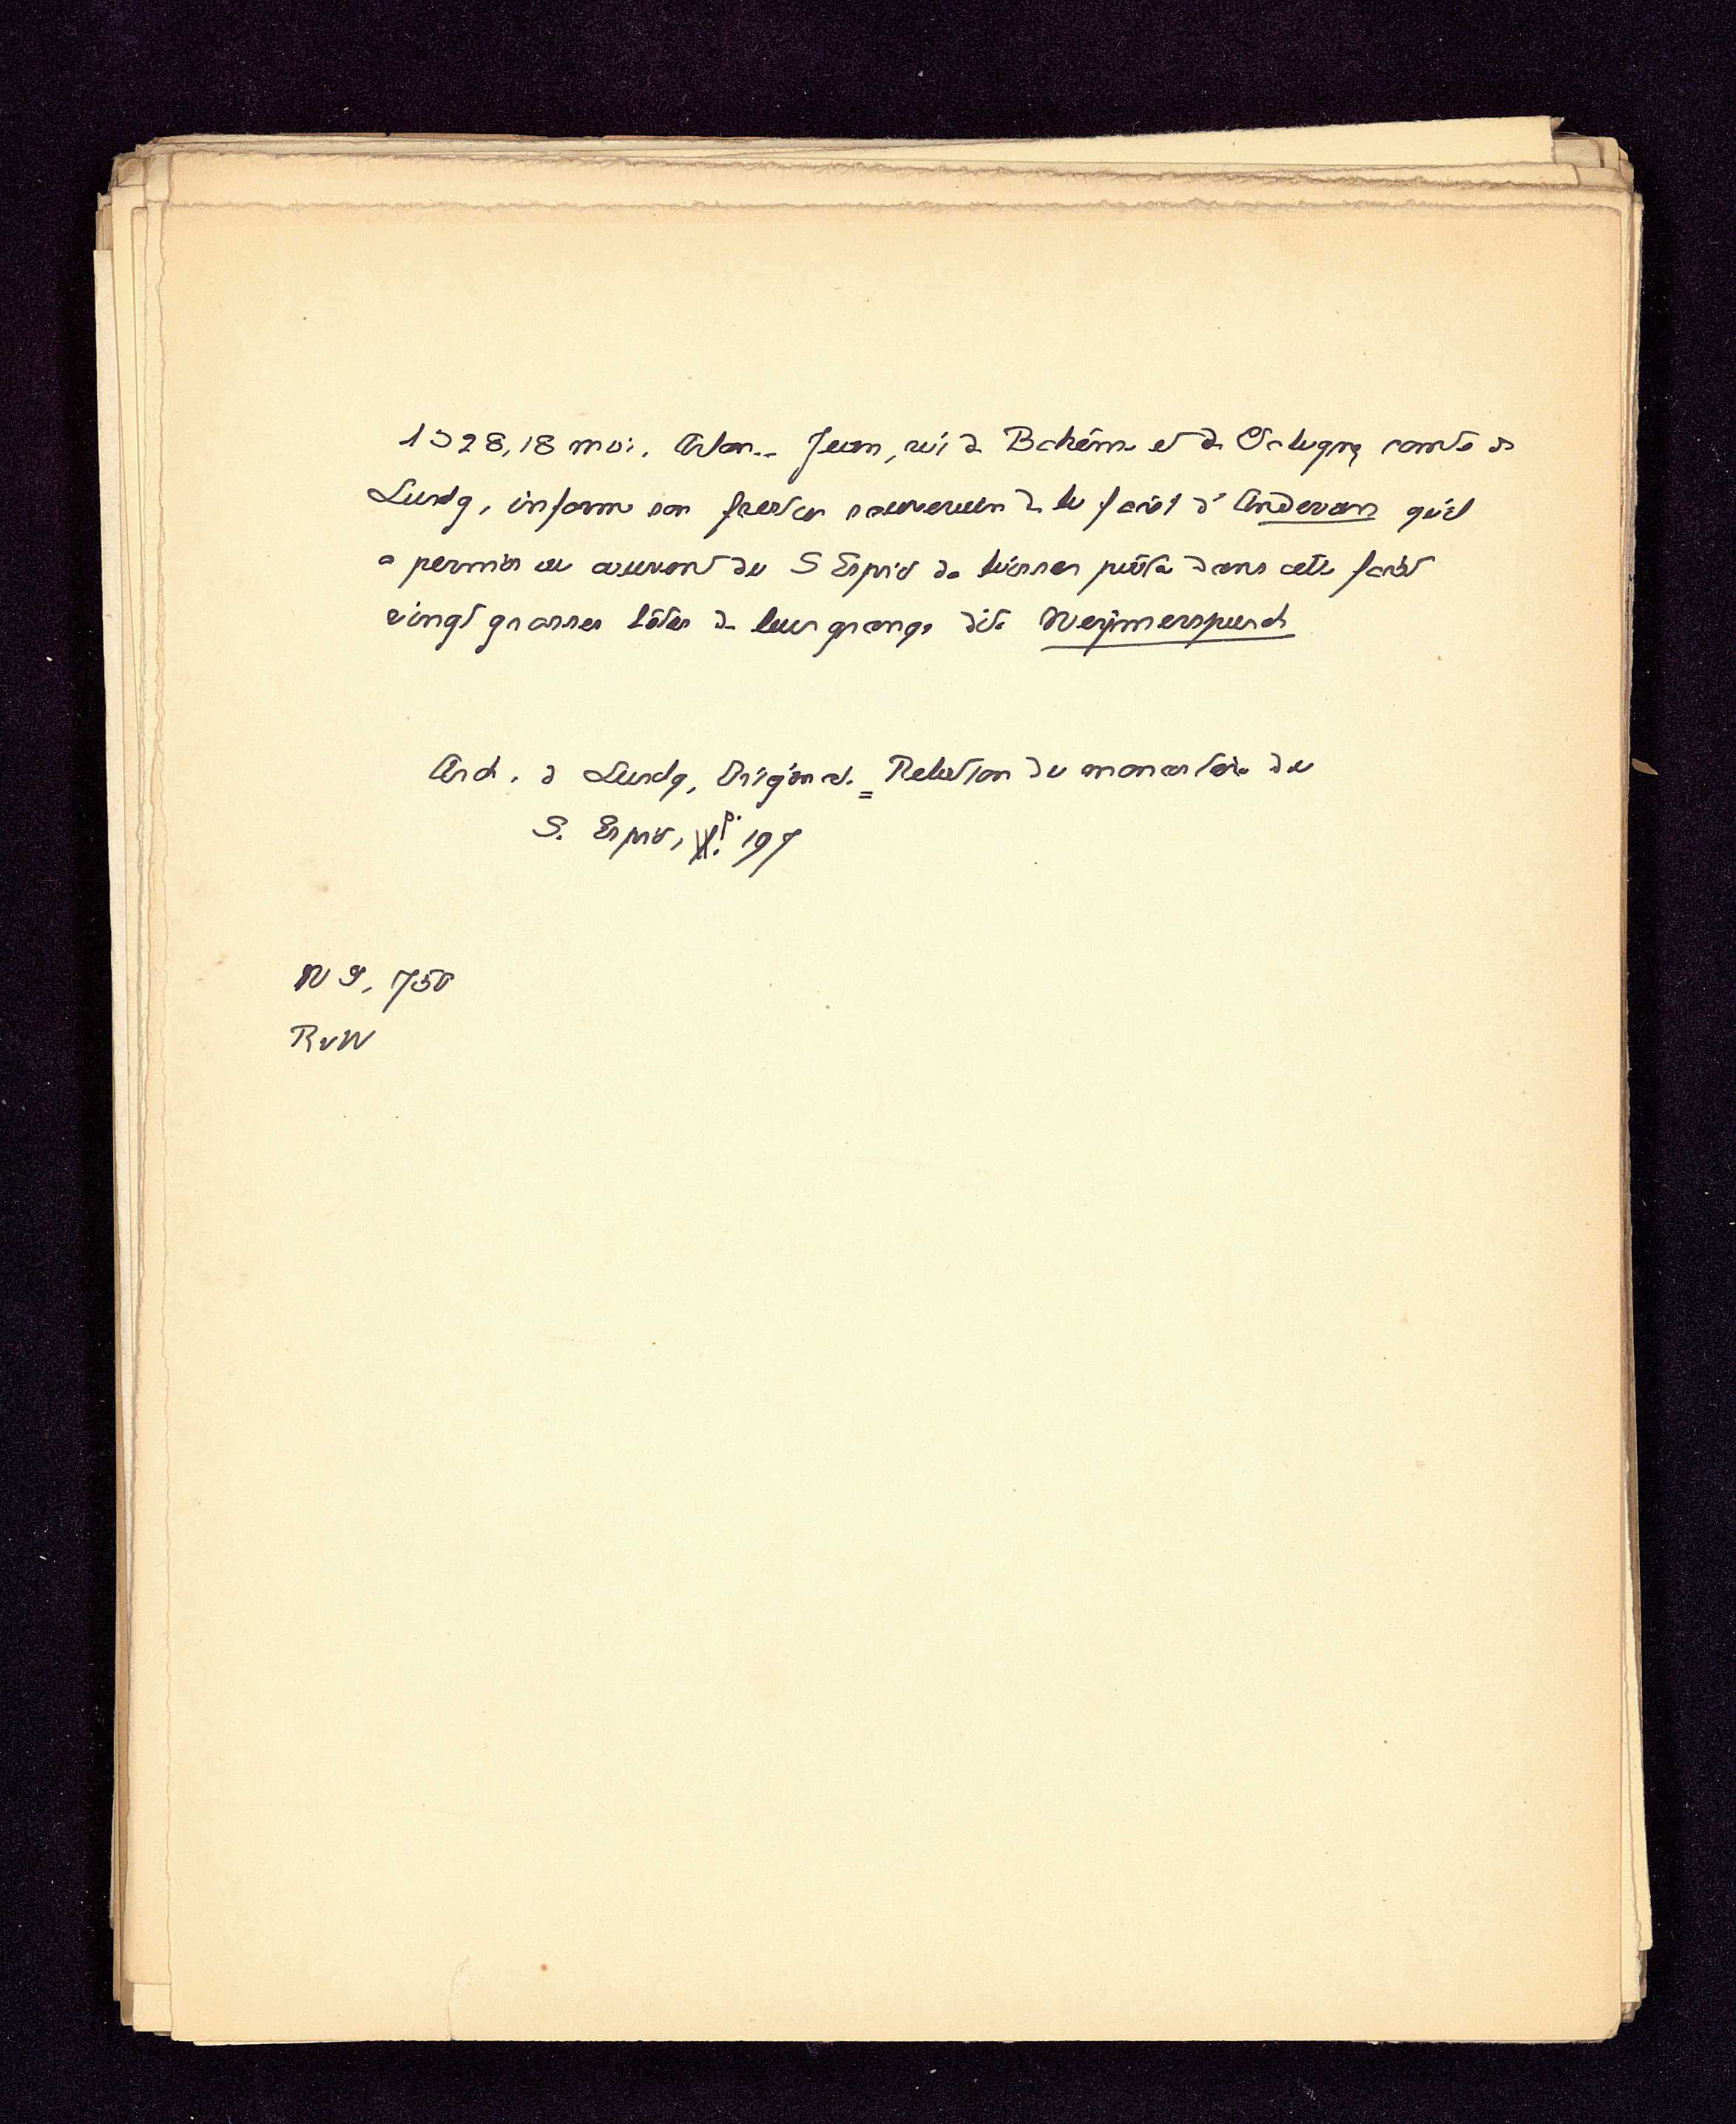 1328, 18 mai. Arlon.- Jean, roi de Bohême et de Pologne, comte de
Luxbg, informe son forestier souverain de la forêt d'Anderan qu'il
a permis au couvent du S Esprit de laisser paître dans cette forêt
vingt grosses bêtes de leur grange dite Weijmerspuch
Arch. d Luxbg, Original. = Relation du monastère du
S. Esprit, p. 197
W P, 750
RvW